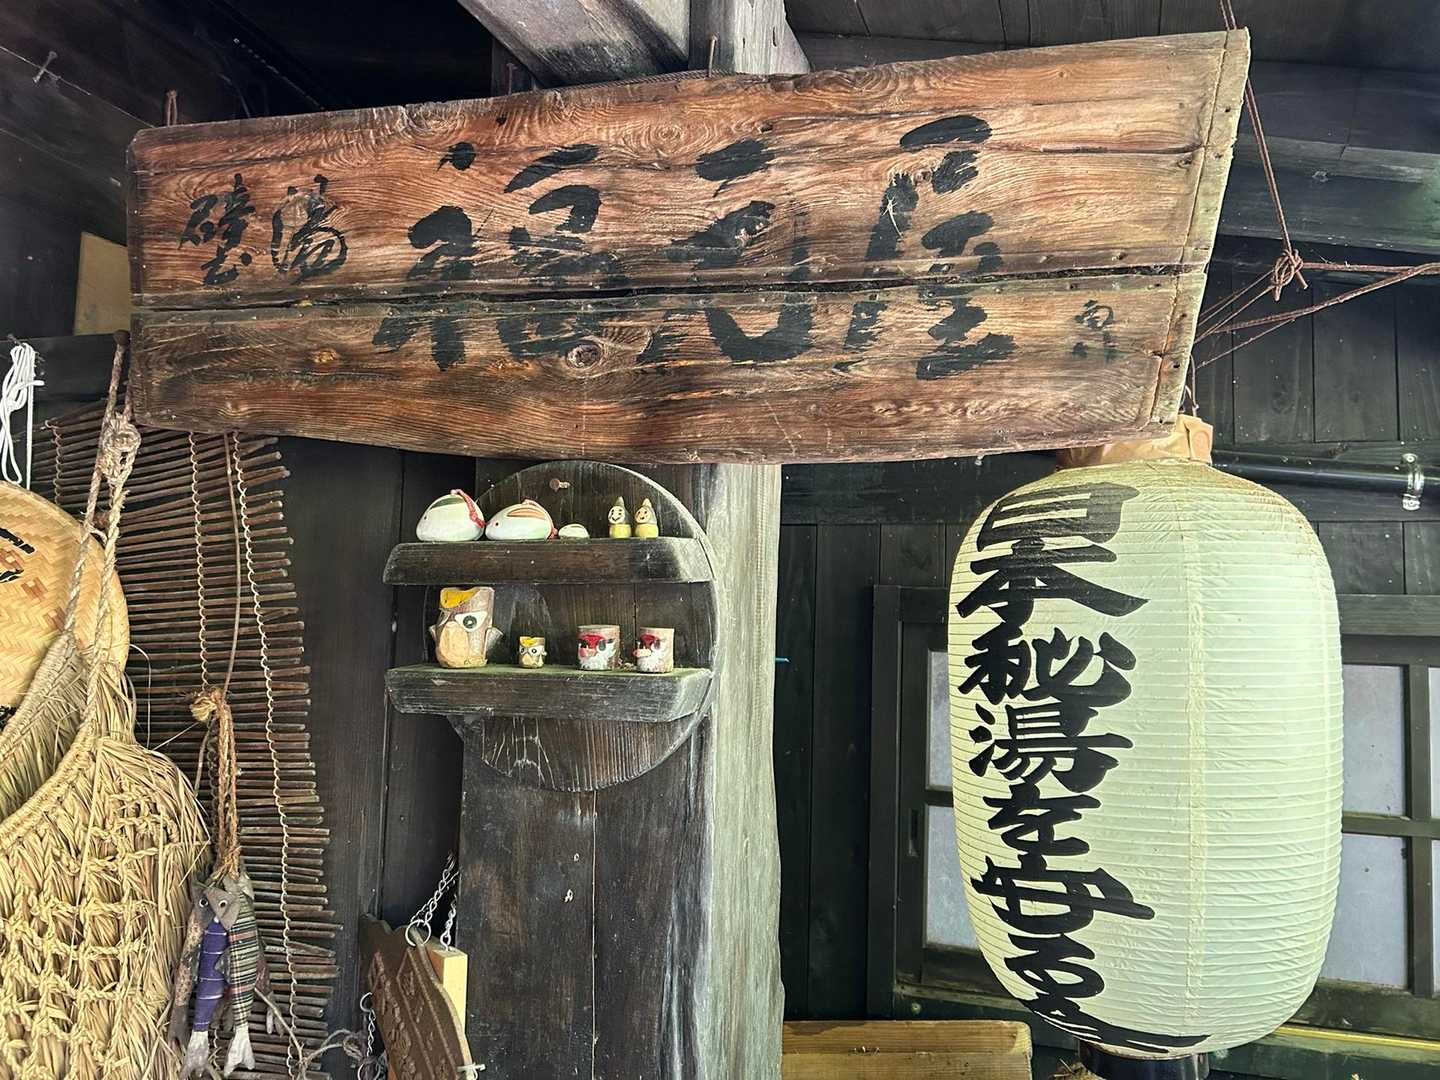 壁湯 福元屋
日本秘湯を守る会